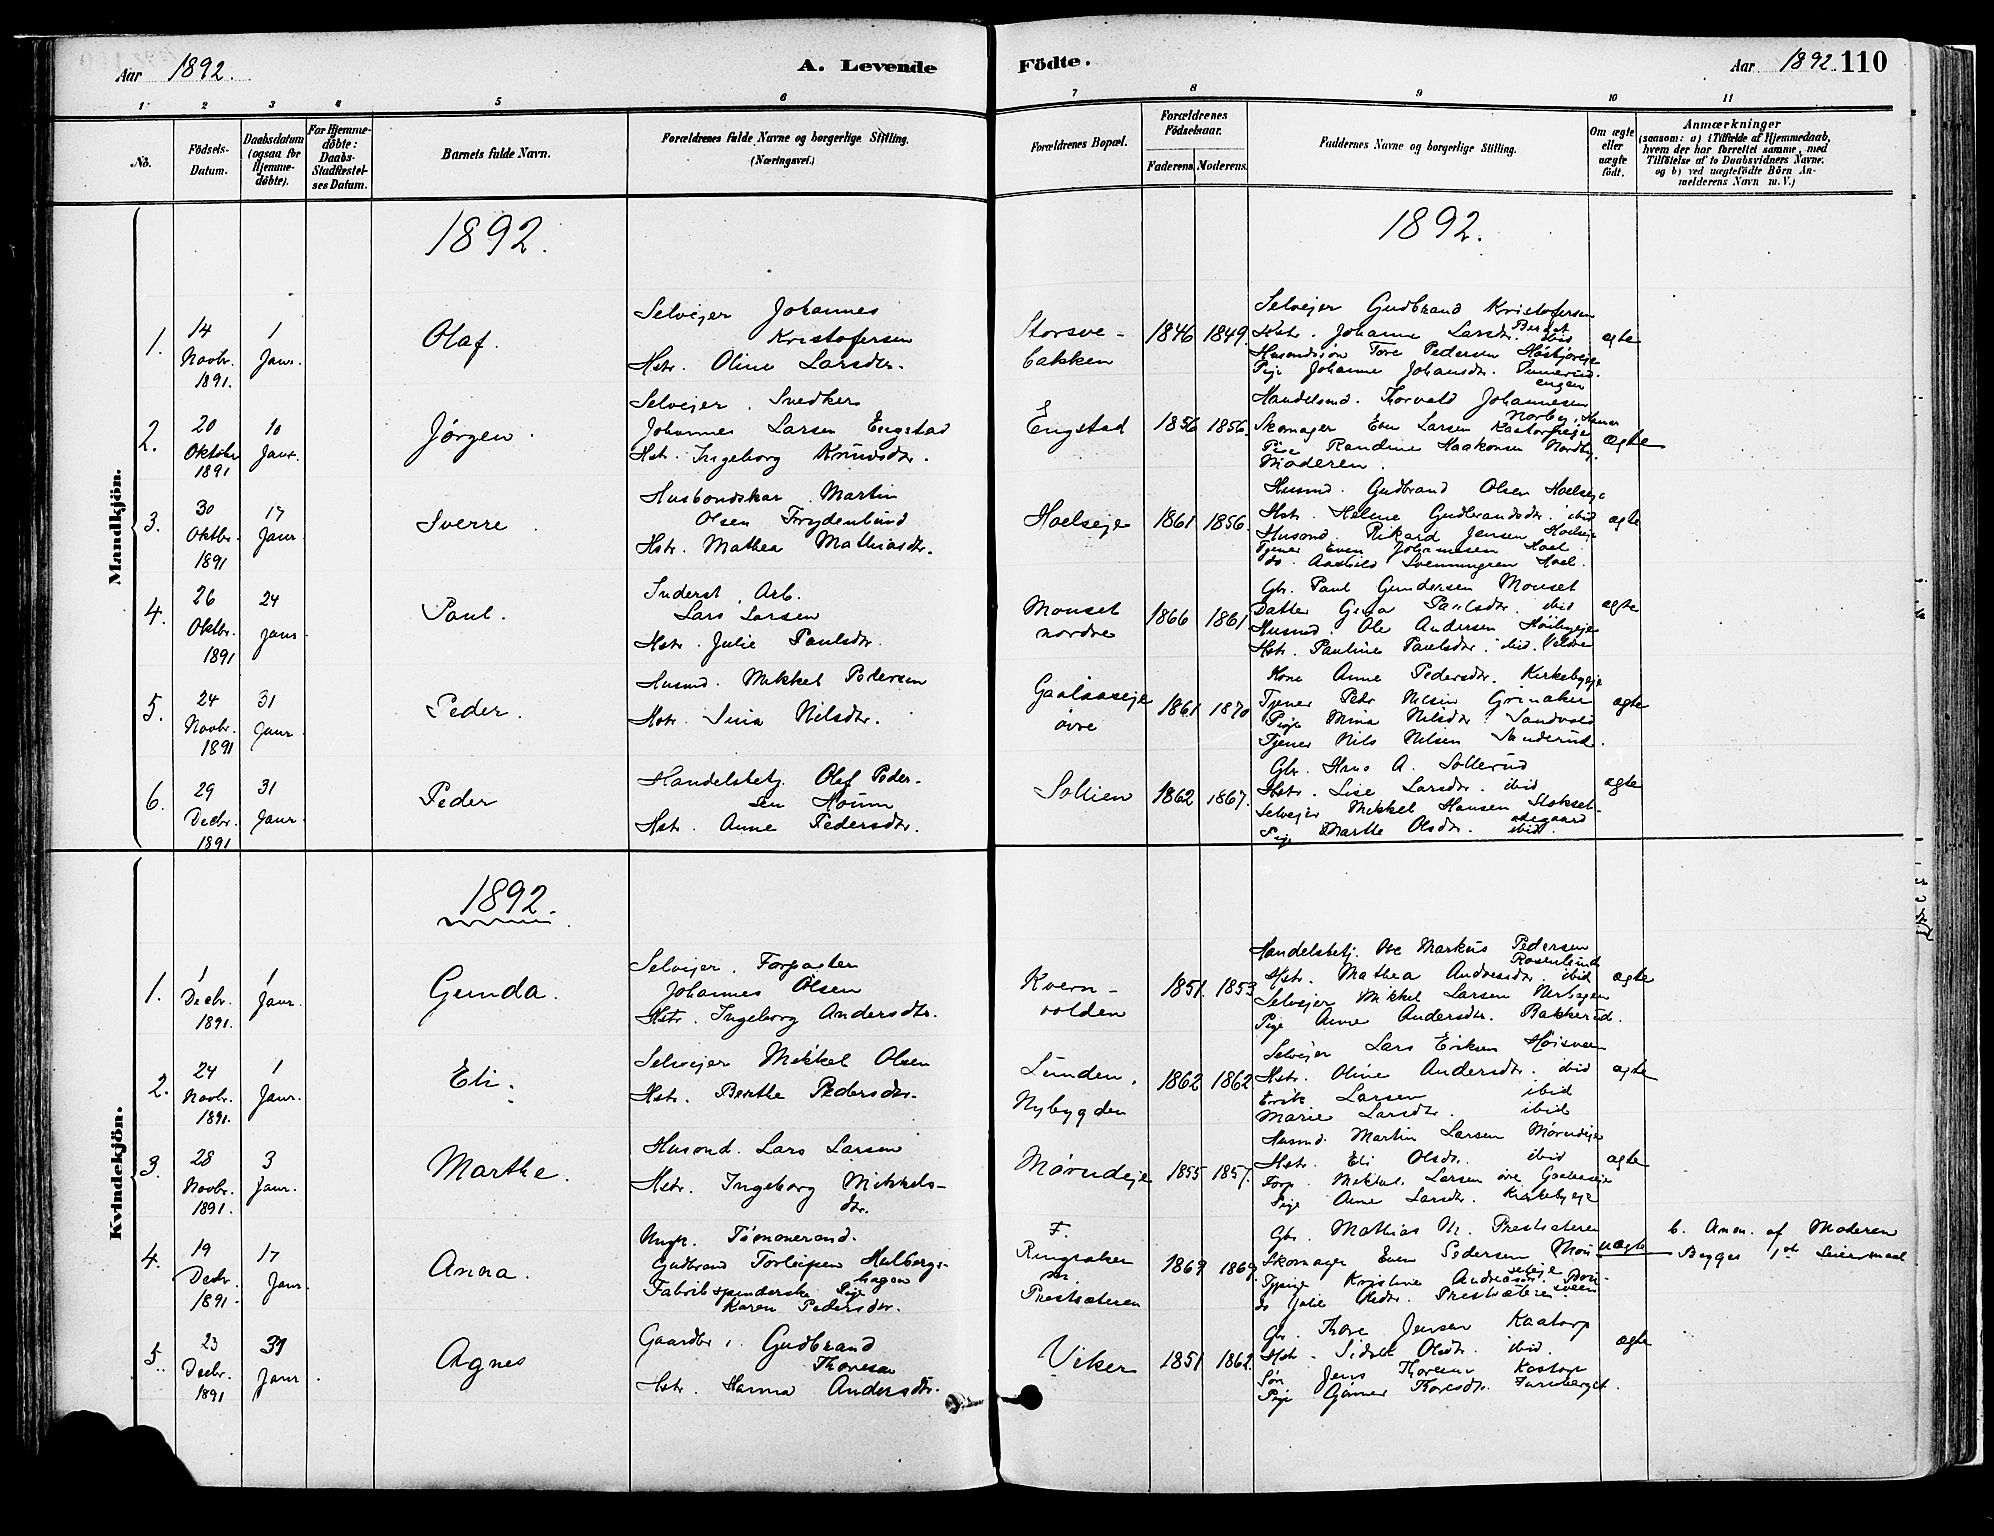 Aar 1892.
A. Levende
Födte.
Aar 1892. 110
1 2 3 4 5 6 7 8 9 10 11
No.
Födsels-
Datum.
Daabsdatum
(ogsaa for
Hjemme-
døbte).
For Hjemme-
døbte:
Daabs-
Stadfæstel-
ses Datum.
Barnets fulde Navn.
Forældrenes fulde Navne og borgerlige Stilling.
(Næringsvei.)
Forældrenes Bopæl.
Forældrenes
Födselsaar.
Faderens. Moderens.
Faddernes Navne og borgerlige Stilling.
Om ægte
eller
uægte
født.
Anmærkninger
(saasom: a) i Tilfælde af Hjemmedaab,
hvem der har forrettet samme, med
Tilføielse af to Daabsvidners Navne.
og b) ved uægtefödte Börn An-
melderens Navn m. V.)
Mandkjön.
1892.
1892.
1.
14
Novbr.
1891.
1
Janr.
Olaf.
Selveier Johannes
Kristofersen
Hstr. Oline Larsdtr.
Storsve-
bakken
1846 1849.
Selveier Gudbrand Kristofersen
Berget
Hstr. Johanne Larsdtr. ibid
Husmandssøn Tore Pedersen
Pige Johanne Johansdtr.
engen
ægte
2.
20
Oktobr
1891
10
Janr.
Jørgen.
Selveier. Snedker
Johannes Larsen Engstad
Hstr. Ingeborg Knudsdtr.
Engstad
1856 1856.
Handelsmd. Thorvald Johannesen
Skomager Even Larsen
Pige Randine Haakonsen Nordby.
Moderen.
ægte
3.
30
Oktbr.
1891
17
Janr
Sverre
Husbondskar Martin
Olsen Frydenlund
Hstr. Mathea Mathiasdtr.
Hoelseje
1861 1856.
Husmd. Gudbrand Olsen Hoelseje
Hstr. Helene Gudbrandsdtr. ibid
Husmd Rikard Jensen Hoelseje
Tjener Even Johannesen Hoel
do. Svenningsen Hoel.
ægte
4.
26
Oktbr.
1891
24
Janr
Paul.
Inderst. Arb.
Lars Larsen
Hstr. Julie Paulsdtr.
Monset
nordre
1866 1861
Gbr. Paul Gundersen Monset
Datter Gina Paulsdtr. ibid
Husmd. Ole Andersen
Hstr. Pauline Paulsdtr. ibid.
ægte
5.
24
Novbr.
1891
31
Janr
Peder.
Husmd. Mikkel Pedersen
Hstr. Sina Nilsdtr.
Gaalaaseje
øvre
1861 1870
Kone Anne Pedersdtr. Kirkebyeje
Tjener Peder Nilsen Grinaker
Pige Mina Nilsdtr. Sandvold
Tjener Nils Nilsen
ægte
6.
29
Decbr.
1891
31
Janr
Peder
Handelsbetj. Olaf Peder-
sen
Hstr. Anne Pedersdtr.
Sollien
1862 1867.
Gbr. Hans A. Sollerud
Hstr. Lise Larsdtr. ibid
Selveier Mikkel Hansen Stokset-
ødegaard
Pige Marthe Olsdtr. ibid.
ægte
Kvindekjön.
1892.
1.
1
Decbr.
1891.
1
Janr.
Gunda.
Selveier. Forpagter
Johannes Olsen
Hstr. Ingeborg Andersdtr.
Kvern-
volden
1851. 1853
Handelsbetj. Ole Markus Pedersen
Rosenlund
Hstr. Mathea Andersdtr. ibid
Selveier Mikkel Larsen
Pige Anne Andersdtr. Bakkerud.
ægte
2.
24
Novbr.
1891.
1
Janr.
Eli.
Selveier Mikkel Olsen
Hstr. Berthe Pedersdtr.
Lunden.
Nybygden
1862 1862.
Selveier Lars Eriksen Høisveen
Hstr. Oline Andersdtr. ibid
Erik Larsen ibid
Marie Larsdtr. ibid
ægte
3.
28
Novbr.
1891.
3
Janr.
Marthe.
Husmd. Lars Larsen
Hstr. Ingeborg Mikkels-
dtr.
Mørudeje
1855 1857.
Husmd. Martin Larsen Mørudeje
Hstr. Eli Olsdtr. ibid
Forp. Mikkel Larsen øvre
Pige Anne Larsdtr. Kirkebyeje
ægte
4.
19
Decbr.
1891
17
Janr.
Anna.
Ungk. Tømmermand.
Gudbrand Torleifsen Helbergs-
hagen
Fabrikspinderske Pige
Karen Pedersdtr.
F.
Ringsaker
M.
Prestsæteren
1869 1869.
Gbr. Mathias M. Prestsæteren
Skomager Even Pedersen
Tjpige Kristine
do Julie Olsdtr. Prestsæteren
uægte
b. Anm. af Moderen
Begges 1ste Leiermaal
5.
23
Decbr.
1891
31
Janr.
Agnes
Gaardbr. Gudbrand
Thoresen
Hstr. Hanna Andersdtr.
Viker
1851 1862.
Gbr. Thore Jensen Kaatorp
Hstr. Olsdtr. ibid.
Søn Jens Thoresen Kaatorp
Pige Thoresdtr. Fureberget.
ægte